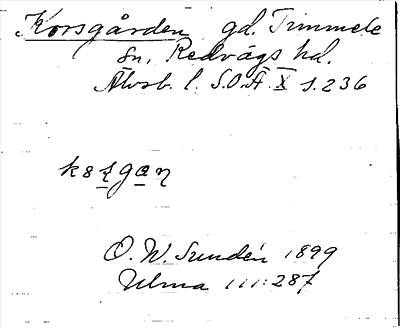 Korsgården gd. Timmele
sn, Redvägs hd.
Älvsb. l. S.O.Ä. X s. 236
O. W. Sundén 1899
Ulma 111:287